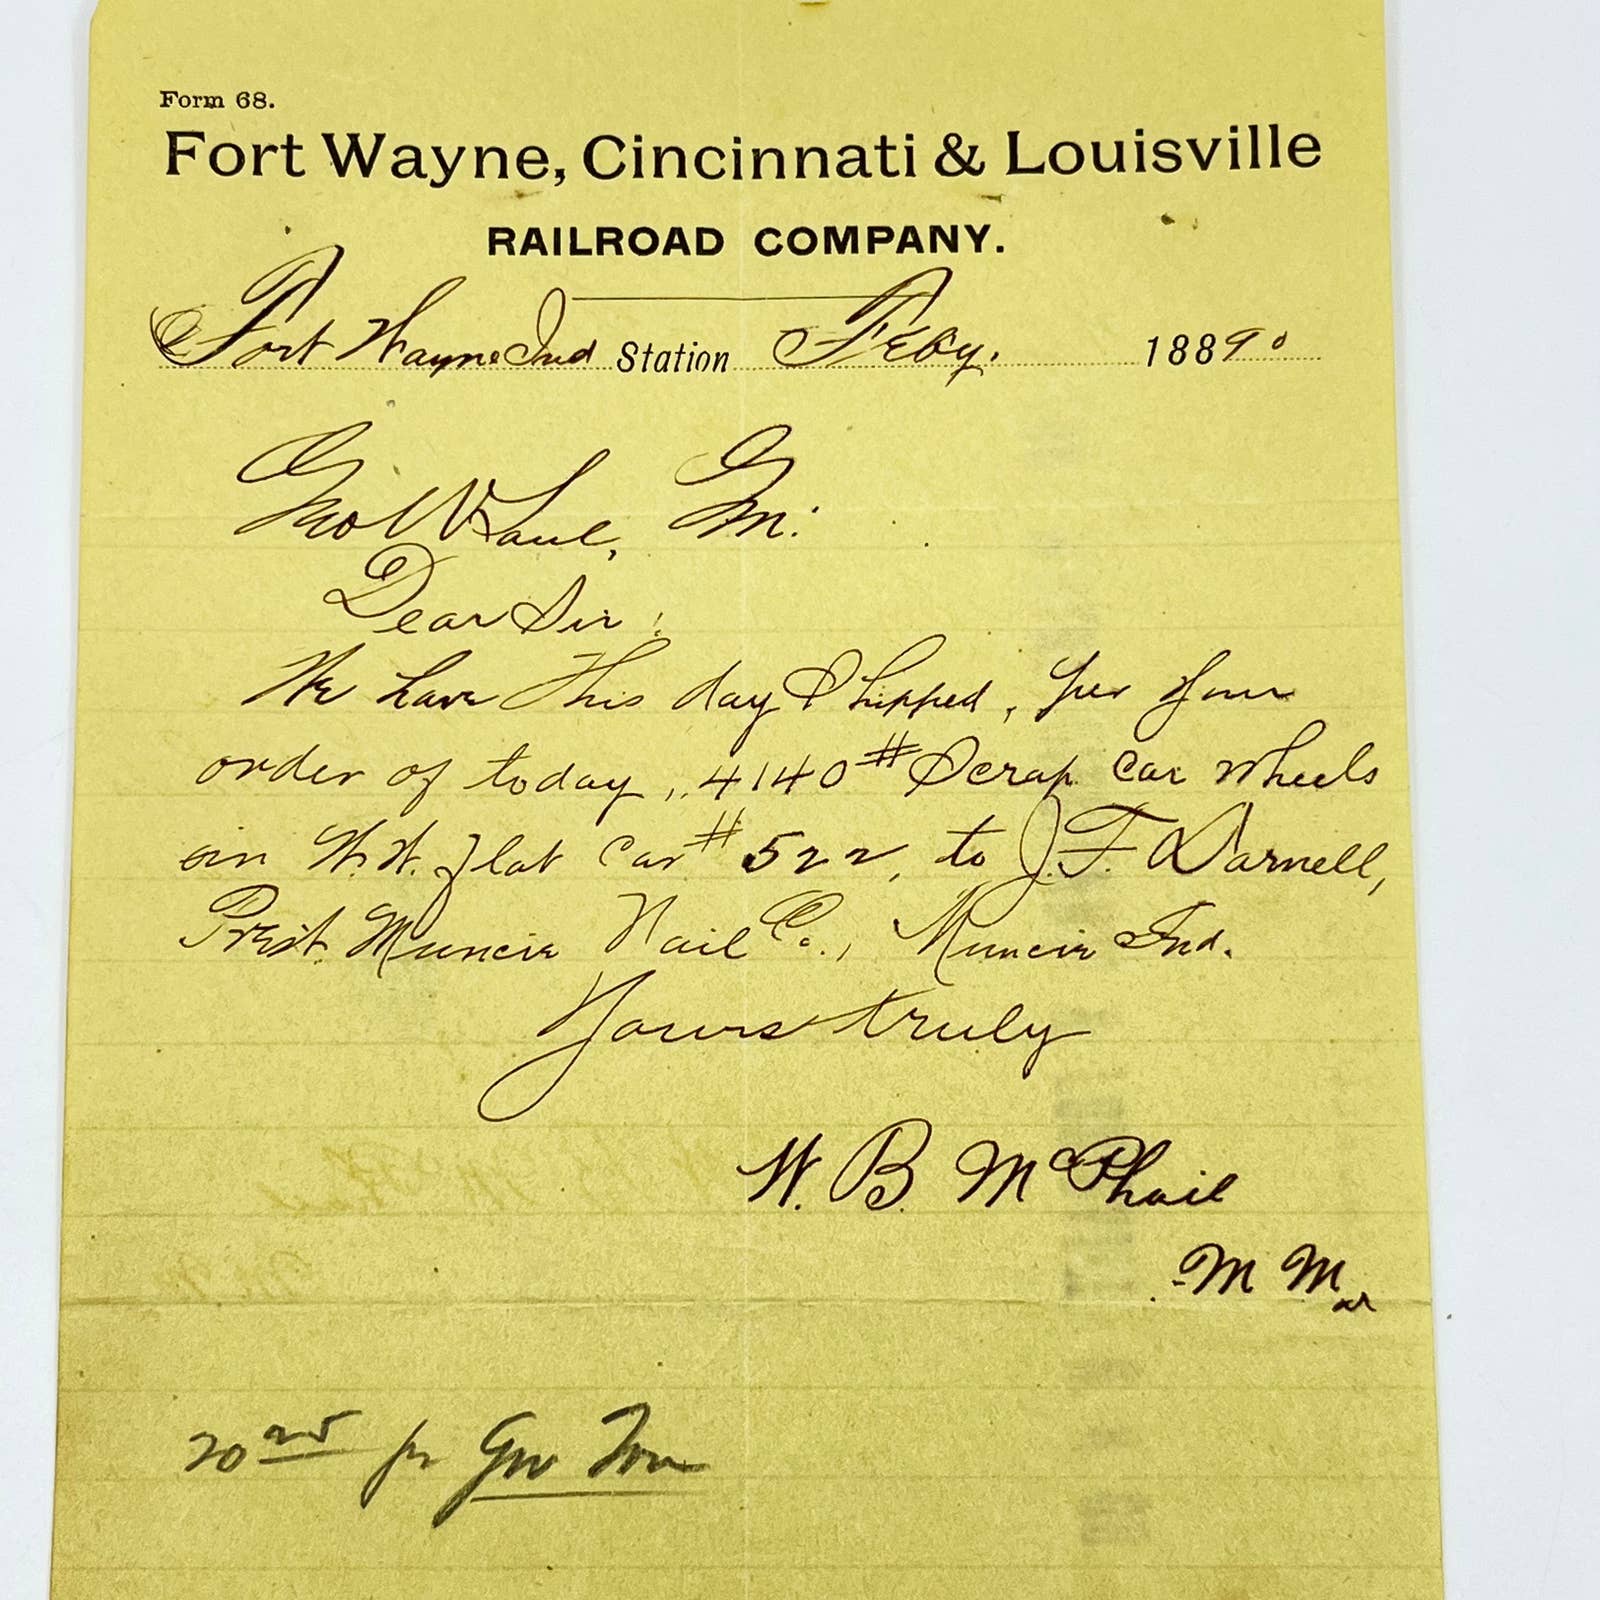 Form 68.
Fort Wayne, Cincinnati & Louisville
RAILROAD COMPANY.
Fort Wayne Ind Station Feby. 1889 0
Geo W Saul, G M:
Dear Sir:
We have this day Shipped, per your
order of today, 4140# Scrap Car wheels
in W. W. flat Car # 522, to J. F. Darnell,
Prest. Muncie Nail Co., Muncie Ind.
Yours truly
W. B. McPhail
M M
20 25 pr Gro Ton